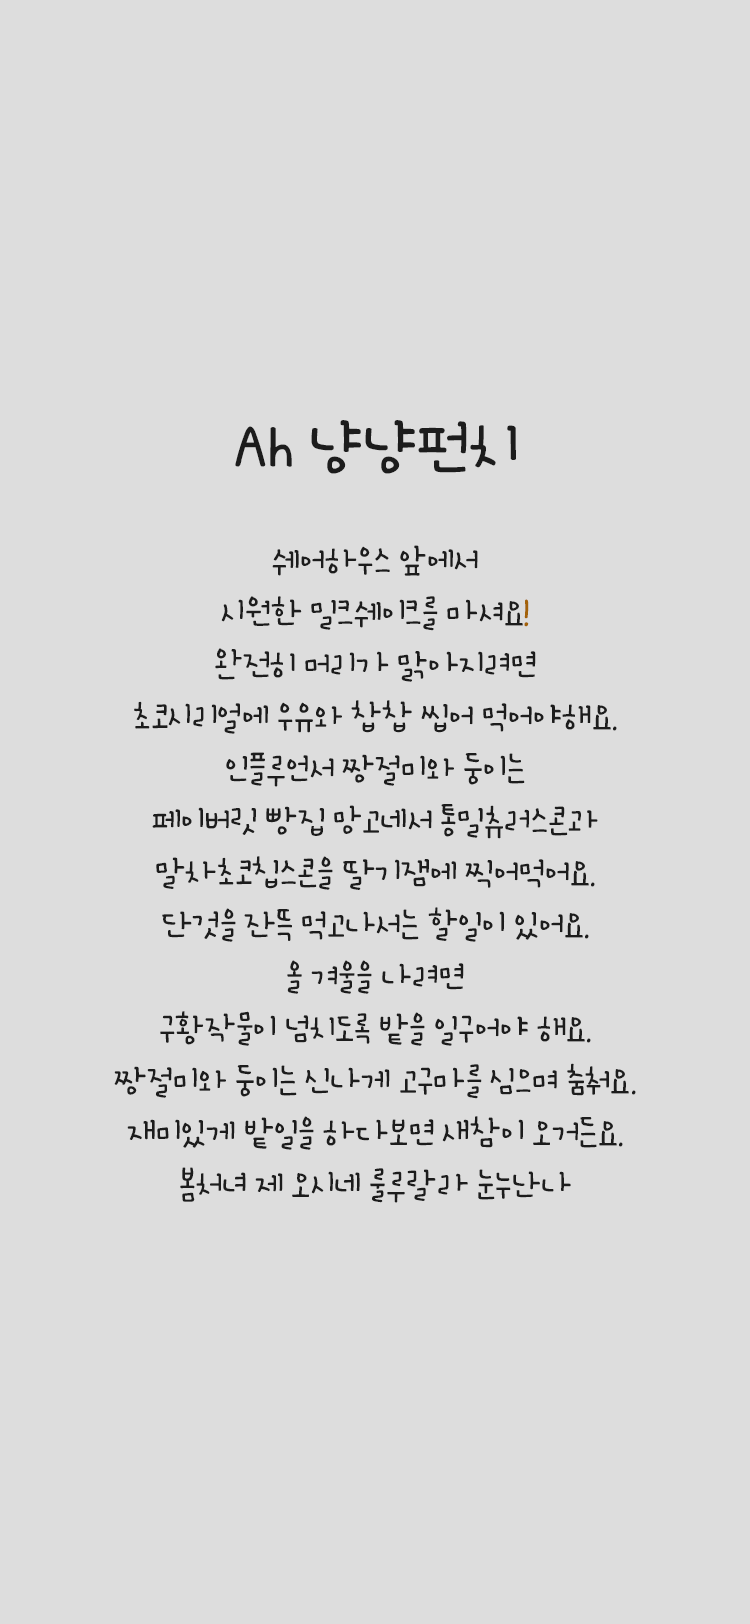 Ah 냥냥펀치
쉐어하우스 앞에서
시원한 밀크쉐이크를 마셔요!
완전히 머리가 맑아지려면
초코시리얼에 우유와 찹찹 씹어 먹어야해요.
인플루언서 짱절미와 둥이는
페이버릿 빵집 망고네서 통밀츄러스콘과
말차초코칩스콘을 딸기잼에 찍어먹어요.
단것을 잔뜩 먹고나서는 할일이 있어요.
올 겨울을 나려면
구황작물이 넘치도록 밭을 일구어야 해요.
짱절미와 둥이는 신나게 고구마를 심으며 춤춰요.
재미있게 밭일을 하다보면 새참이 오거든요.
봄처녀 제 오시네 룰루랄라 눈누난나